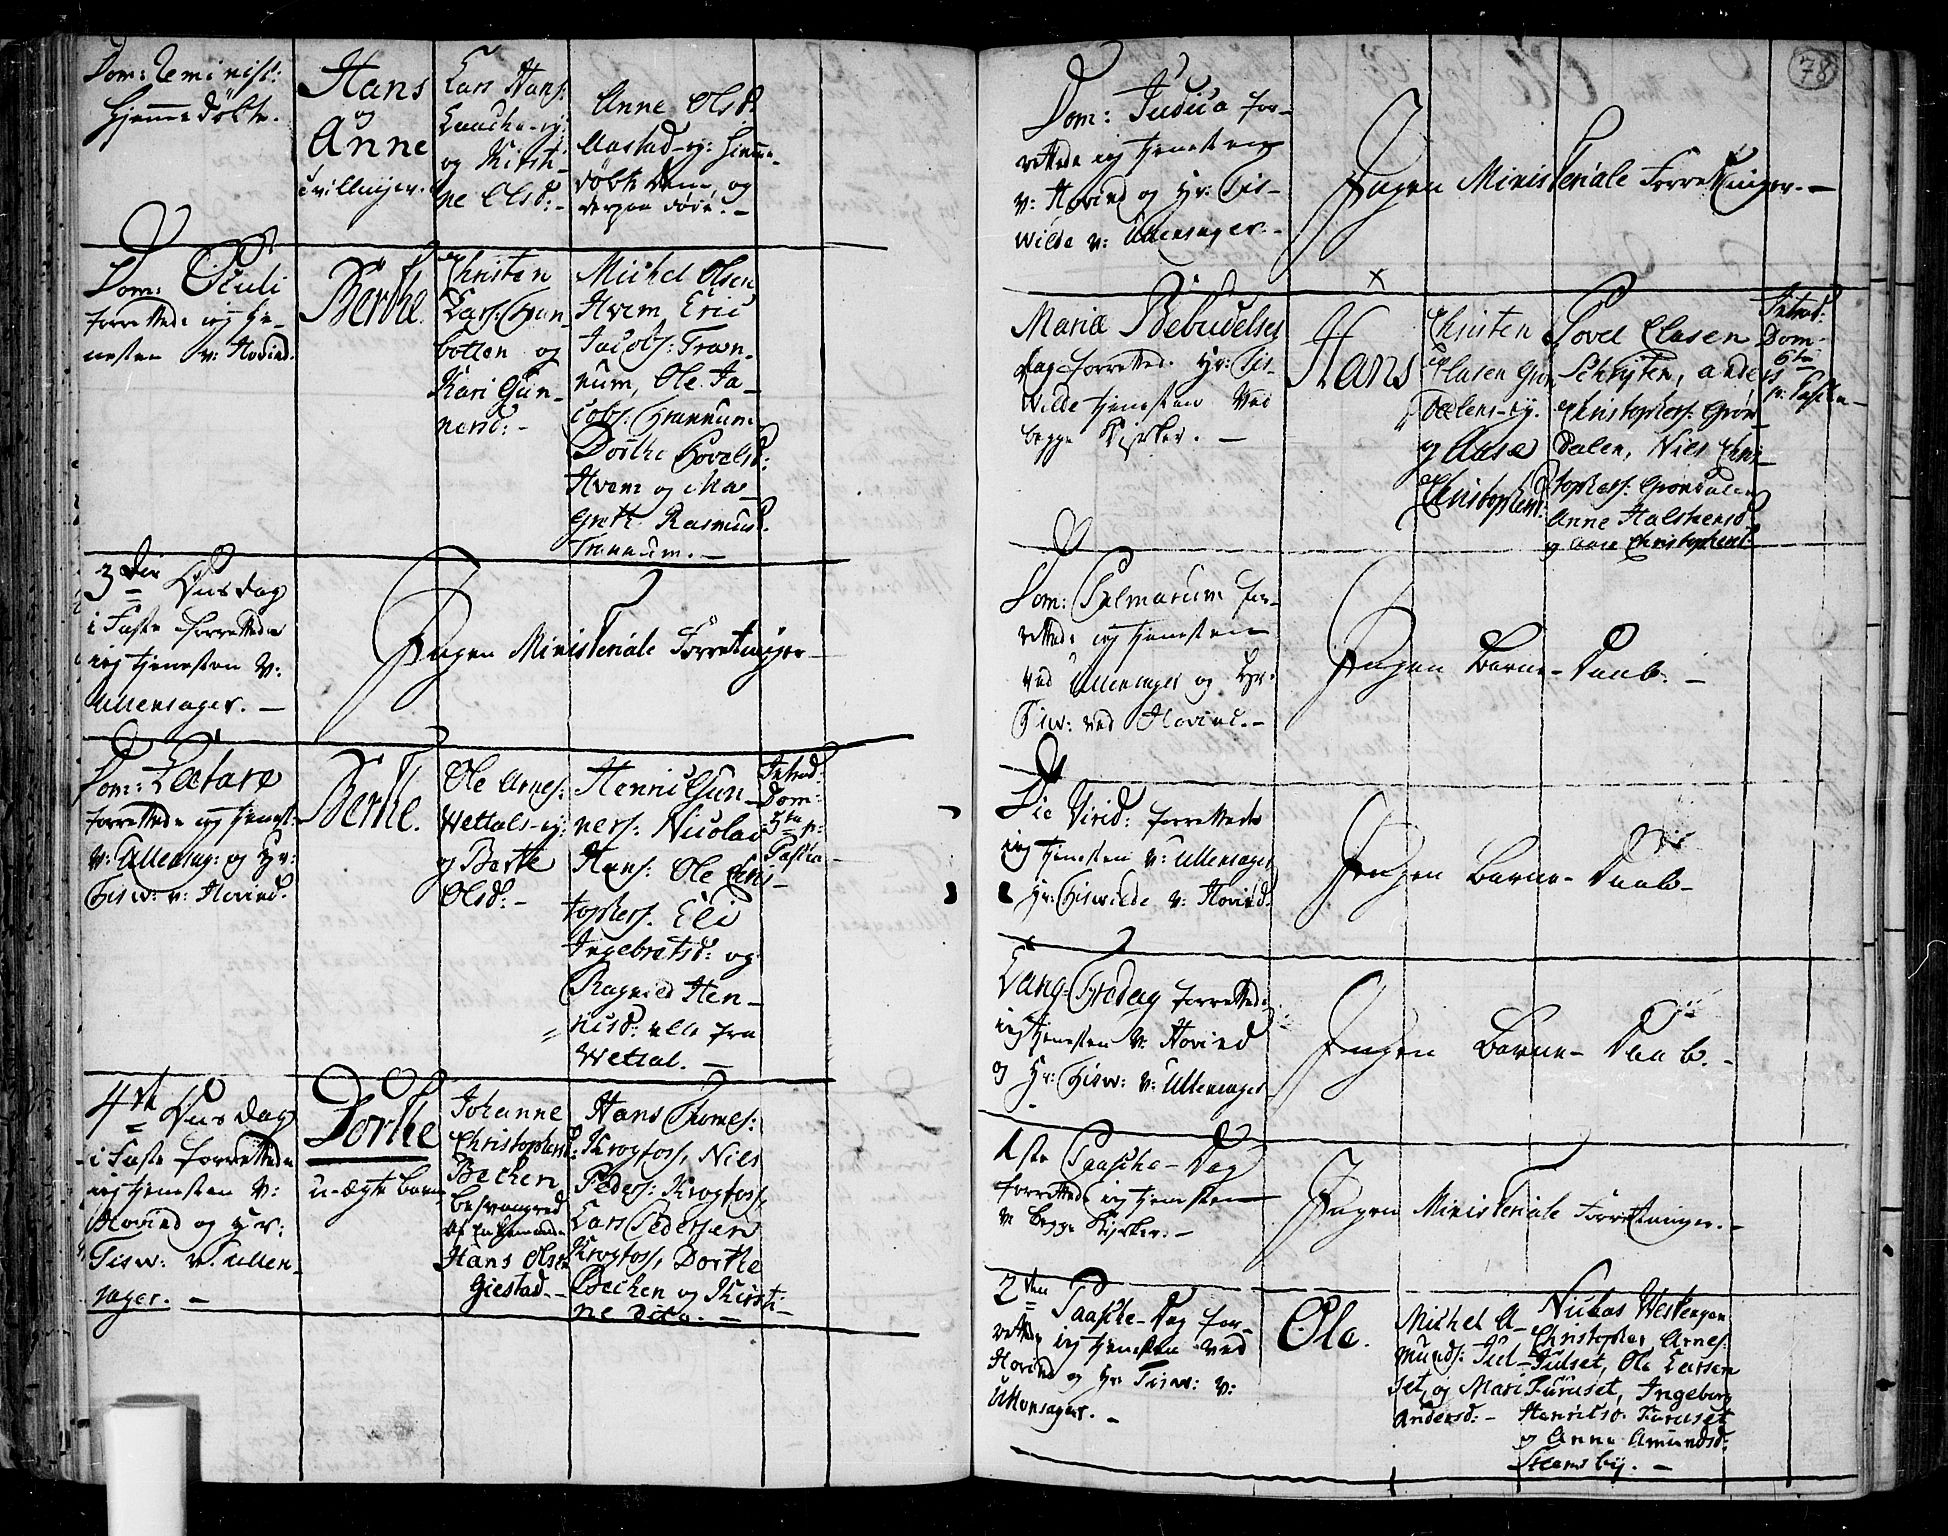 Dom: Reminisc:
Hjemmedöbte.
Hans
og
Anne
tvillinger.
Lars Hans:
og Kirsti-
ne Olsd: -
Anne Olsd.
döbte dem, og
derpaa döde. -
Dom: Oculi
forrettede ieg tie-
nesten v: Hovind.
Berthe.
Christen
Lars:
botten og
Kari Gun-
nersd: -
Michel Olsen
Hvem, Eric
Jacobs: Tran-
num, Ole Ja-
cobs: Trannum
Dorthe Povelsd:
Hvem og Ma-
grethe Rasmusd.
Trannum. -
3die Onsdag
i Faste forrettede
ieg tienesten v:
Ullensager. -
Ingen Ministeriale Forretninger -
Dom: Lætare
forrettede ieg tienest:
v: Ullensag: og Hr:
Tisw: v: Hovind.
Berthe.
Ole Arnes:
Wettals-ey:
og Berthe
Olsd: -
Henric Gun-
ners: Nicolai
Hans: Ole Chris-
tophers. Eli
Ingebretsd: og
Ragnild Hen-
ricsd: alle fra
Wettal. -
Introd:
Dom:
5te p:
Pascha -
4de Onsdag
i Faste forrettede
ieg tienesten v:
Hovind og Hr:
Tisw: v: Ullen-
sager. -
Dorthe
u-ægte barn
Johanne
Christophersd:
Bechen
besvangred
af Enkemand
Hans Olsen
Giestad. -
Hans Thomes:
Krogfoss, Niels
Peders: Krogfoss,
Lars Pedersen
Krogfoss, Dorthe
Bechen og Kirsti-
ne dito. -
78
Dom: Judica for-
rettede ieg tienesten
v: Hovind og Hr: Tis-
wilde v: Ullensager. -
Ingen Ministeriale Forretninger. -
Mariæ Bebudelses
dag forrettede Hr: Tis-
wilde tienesten ved
begge Kirker. -
x
Hans
Christen
Clasen Grön-
dalens-ey.
og Aase
Christophersd:
Povel Clasen
Schryten, Anders
Christophers: Grön-
dalen, Niels Chris-
tophers: Gröndalen
Anne Halstensd.
og Aase Christophersd.
Introd:
Dom.
6te
p: Pascha -
Dom: Palmarum for-
rettede ieg tienesten
ved Ullensager og Hr:
Tisw: ved Hovind. -
Ingen Barne-Daab. -
Die Virid: forrettede
ieg tienesten v: Ullensager
Hr: Tiswilde v: Hovind.
Ingen Barne-Daab -
Lang-Fredag forrettede
ieg tienesten v: Hovind
og Hr: Tisw: v: Ullensager
Ingen Barne-Daab. -
1ste Paasche-Dag
forrettede ieg tienesten
v: begge Kirker. -
Ingen Ministeriale Forretninger. -
2den Paasche-Dag for-
rettede ieg tienesten ved
Hovind og Hr Tisw: v:
Ullensager. -
Ole.
Michel A-
munds: Jul-
set, og Mari
Andersd: -
Nicolas Westengen
Christopher Arnes:
Julset, Ole Larsen
Furuset, Ingeborg
Henricsd: Furuset
og Anne Amundsd:
Steensby. -